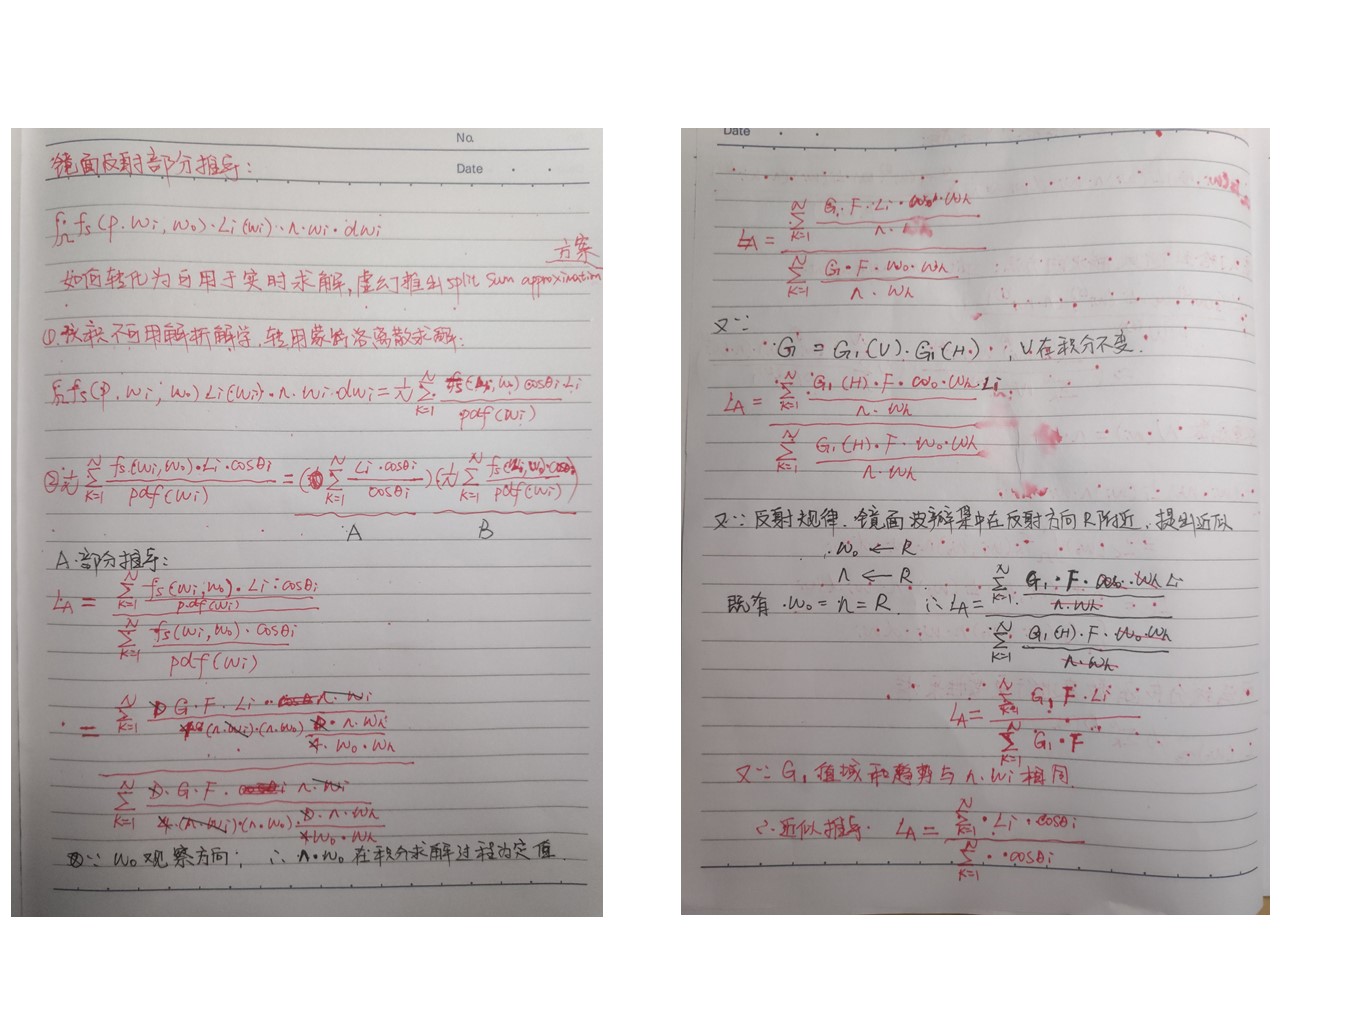 No.
Date
镜面反射部分推导:
∫Ω fs(p, wi, wo)·Li(wi)·n·wi·dwi
方案
如何转化为可用于实时求解,虚幻推出split sum approximation
① 积不可用解析解学,转用蒙特洛离散求解:
∫Ω fs(p, wi, wo) Li(wi)·n·wi·dwi = 1/N ∑(k=1→N) fs(wi, wo) cosθi·Li / pdf(wi)
② 1/N ∑(k=1→N) fs(wi, wo)·Li·cosθi / pdf(wi) = (∑(k=1→N) Li·cosθi / cosθi)(1/N ∑(k=1→N) fs(wi, wo)·cosθi / pdf(wi))
A B
A部分推导:
LA = [∑(k=1→N) fs(wi, wo)·Li·cosθi / pdf(wi)] / [∑(k=1→N) fs(wi, wo)·cosθi / pdf(wi)]
= [∑(k=1→N) D·G·F·Li·n·wi / 4(n·wi)·(n·wo) D·n·wh / 4·wo·wh] / [∑(k=1→N) D·G·F·n·wi / 4·(n·wi)·(n·wo)·D·n·wh / 4wo·wh]
∵ wo观察方向; ∴ n·wo 在积分求解过程为定值
Date
LA = [∑(k=1→N) G·F·Li·wo·wh / n·wh] / [∑(k=1→N) G·F·wo·wh / n·wh]
又∵
G = G1(V)·G1(H) , V在积分不变.
LA = [∑(k=1→N) G1(H)·F·wo·wh·Li / n·wh] / [∑(k=1→N) G1(H)·F·wo·wh / n·wh]
又∵反射规律.镜面波瓣集中在反射方向R附近.提出近似
wo ← R
n ← R
既有 wo = n = R. ∴ LA = [∑(k=1→N) G1·F·wo·wh Li / n·wh] / [∑(k=1→N) G1(H)·F·wo·wh / n·wh]
LA = [∑(k=1→N) G1 F·Li] / [∑(k=1→N) G1·F]
又∵ G1 值域和趋势与 n·wi 相同.
∴近似推导. LA = [∑(k=1→N) Li·cosθi] / [∑(k=1→N) cosθi]